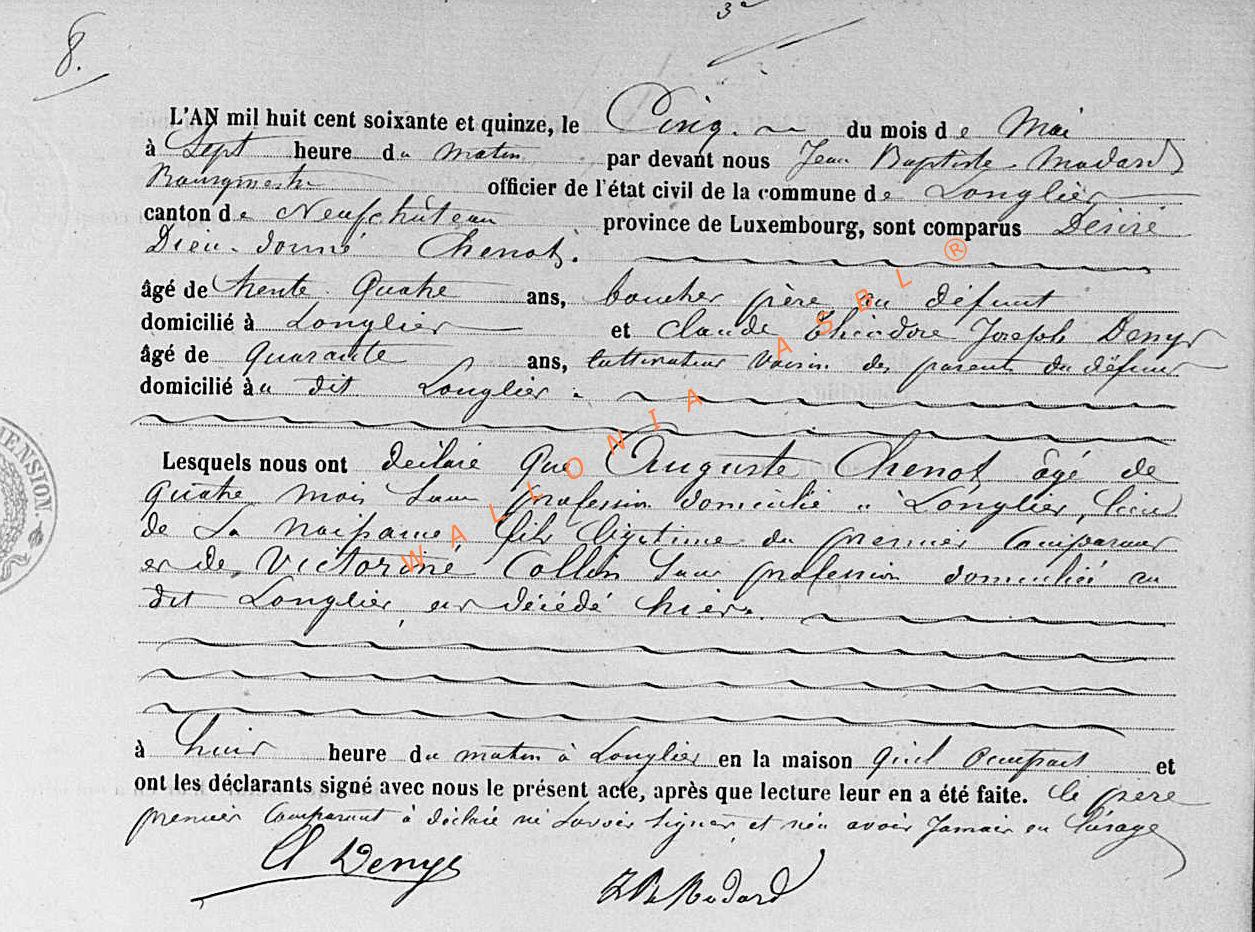 8.
L'AN mil huit cent soixante et quinze, le Cinq du mois de Mai
à Sept heure du matin par devant nous Jean Baptiste Modard
Bourgmestre officier de l'état civil de la commune de Longlier
canton de Neufchâteau province de Luxembourg, sont comparus Désiré
Dieu-donné Chenot.
âgé de trente Quatre ans, boucher père au défunt
domicilié à Longlier et Claude Théodore Joseph Denys
âgé de Quarante ans, cultivateur voisin des parents du défunt
domicilié à u dit Longlier.
Lesquels nous ont déclaré Que Auguste Chenot âgé de
quatre mois sans profession domicilié à Longlier, lieu
de sa naissance, fils légitime du premier Comparant
et de, Victorine Collin sans profession domiciliée au
dit Longlier, est décédé hier.
à huit heure du matin à Longlier en la maison qu'il occupait et
ont les déclarants signé avec nous le présent acte, après que lecture leur en a été faite. le père
premier Comparant à déclaré ne savoir signer et n'en avoir Jamais eu l'usage
Cl Denys
JB Modard
WALLONIA ASBL ®
ENSION.